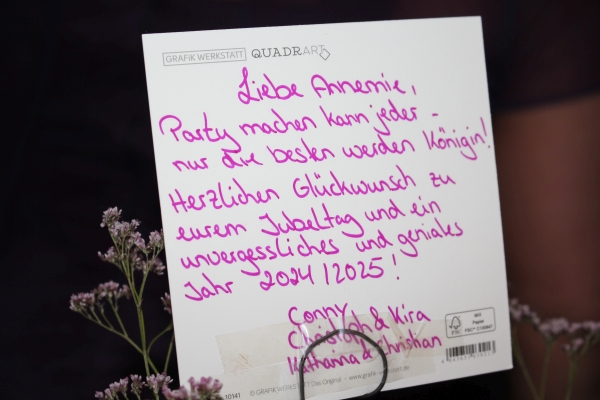 GRAFIK WERKSTATT QUADRART
Liebe Annemie,
Party machen kann jeder -
nur die besten werden Königin!
Herzlichen Glückwunsch zu
eurem Jubeltag und ein
unvergessliches und geniales
Jahr 2024/2025!
Conny
Christoph & Kira
Katharina & Christian
FSC
MIX
Papier
© GRAFIK WERKSTATT Das Original
10141